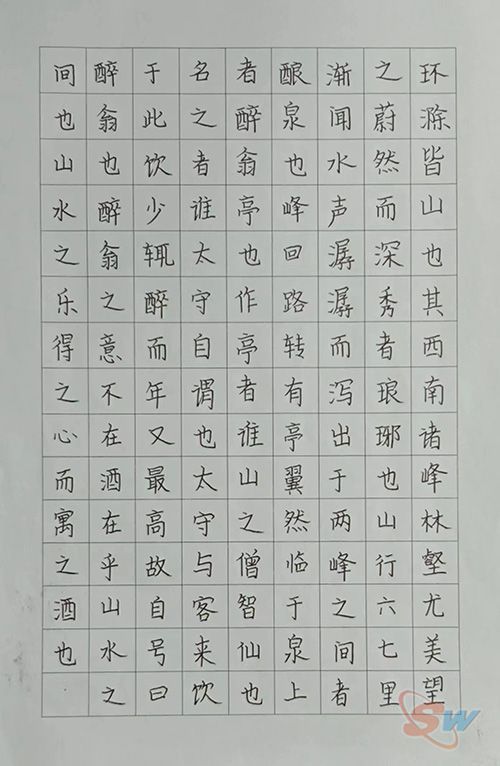 环滁皆山也其西南诸峰林壑尤美望
之蔚然而深秀者琅琊也山行六七里
渐闻水声潺潺而泻出于两峰之间者
酿泉也峰回路转有亭翼然临于泉上
者醉翁亭也作亭者谁山之僧智仙也
名之者谁太守自谓也太守与客来饮
于此饮少辄醉而年又最高故自号曰
醉翁也醉翁之意不在酒在乎山水之
间也山水之乐得之心而寓之酒也
SW